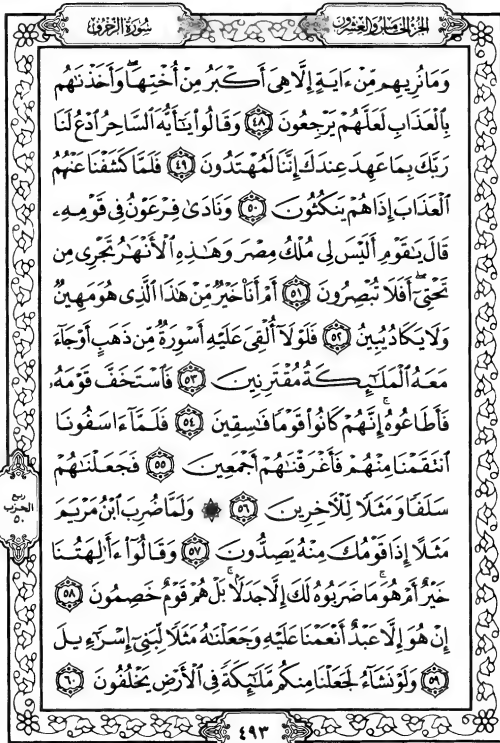 سُورَةُ الزُّخْرُفِ
الجُزءُ الخَامِسُ وَالعِشْرُونَ
وَمَا نُرِيهِم مِّنْ ءَايَةٍ إِلَّا هِىَ أَكْبَرُ مِنْ أُخْتِهَا ۖ وَأَخَذْنَٰهُم
بِٱلْعَذَابِ لَعَلَّهُمْ يَرْجِعُونَ ٤٨ وَقَالُوا۟ يَٰٓأَيُّهَ ٱلسَّاحِرُ ٱدْعُ لَنَا
رَبَّكَ بِمَا عَهِدَ عِندَكَ إِنَّنَا لَمُهْتَدُونَ ٤٩ فَلَمَّا كَشَفْنَا عَنْهُمُ
ٱلْعَذَابَ إِذَا هُمْ يَنكُثُونَ ٥٠ وَنَادَىٰ فِرْعَوْنُ فِى قَوْمِهِۦ
قَالَ يَٰقَوْمِ أَلَيْسَ لِى مُلْكُ مِصْرَ وَهَٰذِهِ ٱلْأَنْهَٰرُ تَجْرِى مِن
تَحْتِىٓ ۖ أَفَلَا تُبْصِرُونَ ٥١ أَمْ أَنَا۠ خَيْرٌ مِّنْ هَٰذَا ٱلَّذِى هُوَ مَهِينٌ
وَلَا يَكَادُ يُبِينُ ٥٢ فَلَوْلَآ أُلْقِىَ عَلَيْهِ أَسْوِرَةٌ مِّن ذَهَبٍ أَوْ جَآءَ
مَعَهُ ٱلْمَلَٰٓئِكَةُ مُقْتَرِنِينَ ٥٣ فَٱسْتَخَفَّ قَوْمَهُۥ
فَأَطَاعُوهُ ۚ إِنَّهُمْ كَانُوا۟ قَوْمًا فَٰسِقِينَ ٥٤ فَلَمَّآ ءَاسَفُونَا
ٱنتَقَمْنَا مِنْهُمْ فَأَغْرَقْنَٰهُمْ أَجْمَعِينَ ٥٥ فَجَعَلْنَٰهُمْ
سَلَفًا وَمَثَلًا لِّلْءَاخِرِينَ ٥٦ ۞ وَلَمَّا ضُرِبَ ٱبْنُ مَرْيَمَ
مَثَلًا إِذَا قَوْمُكَ مِنْهُ يَصِدُّونَ ٥٧ وَقَالُوٓا۟ ءَأَٰلِهَتُنَا
خَيْرٌ أَمْ هُوَ ۚ مَا ضَرَبُوهُ لَكَ إِلَّا جَدَلًۢا ۚ بَلْ هُمْ قَوْمٌ خَصِمُونَ ٥٨
إِنْ هُوَ إِلَّا عَبْدٌ أَنْعَمْنَا عَلَيْهِ وَجَعَلْنَٰهُ مَثَلًا لِّبَنِىٓ إِسْرَٰٓءِيلَ
٥٩ وَلَوْ نَشَآءُ لَجَعَلْنَا مِنكُم مَّلَٰٓئِكَةً فِى ٱلْأَرْضِ يَخْلُفُونَ ٦٠
ربع
الحزب
٥٠
٤٩٣